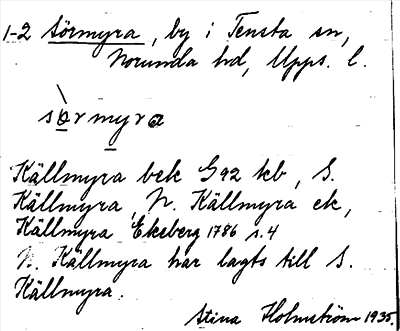 1-2 Sörmyra, by i Tensta sn,
Norunda hd, Upps. l.
sørmyra
Källmyra bek G92 kb, S.
Källmyra, N. Källmyra ek,
Källmyra Ekeberg 1786 s.4
N. Källmyra har lagts till S.
Källmyra.
Stina Holmström 1935.